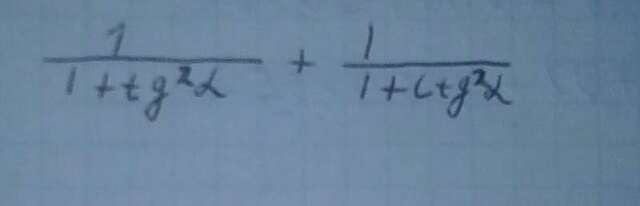 1/(1+tg²α) + 1/(1+ctg²α)